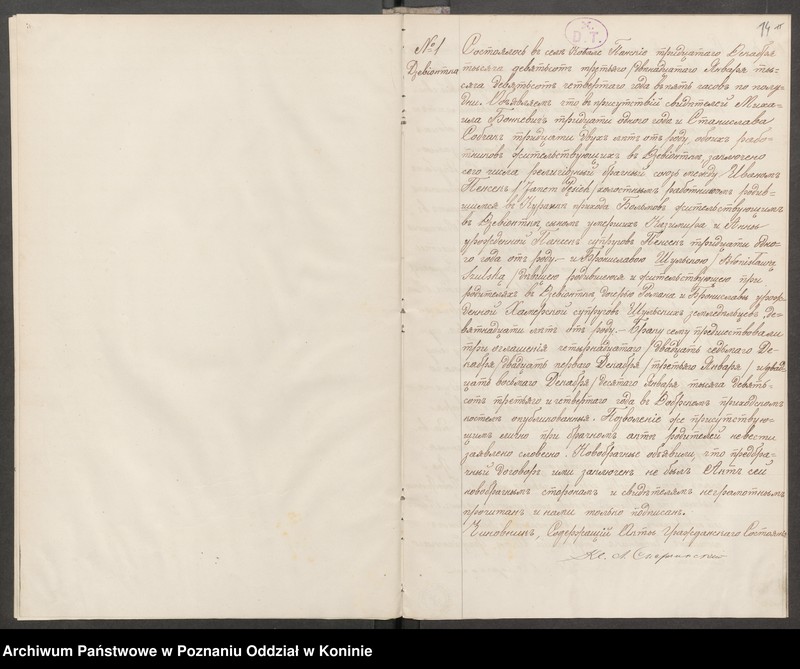 14
X.
D.T.
№ 1
Девіонтка
Состоялось въ селѣ тридцатаго Декабря
тысяча девятьсотъ третьяго /двѣнадцатаго Января ты-
сяча девятьсотъ четвертаго года въ пять часовъ по полу-
дни. Объявляемъ что въ присутствіи свидѣтелей Миха-
ила тридцати одного года и Станислава
тридцати двухъ лѣтъ отъ роду, обоихъ рабо-
тниковъ жительствующихъ въ Девіонткѣ, заключено
сего числа религіозный брачный союзъ между Иваномъ
/Janem / холостымъ работникомъ родив-
шимся въ прихода жительствующимъ
въ Девіонткѣ, сыномъ умершихъ Казимира и Анны
урожденной супруговъ тридцати одно-
го года отъ роду – и Брониславою Шульскою /Bronisławą
Szulską/ дѣвицею родившеюся и жительствующею при
родителяхъ въ Девіонткѣ, дочерью Романа и Брониславы урож-
денной супруговъ Шульскихъ земледѣльцевъ, де-
вятнадцати лѣтъ отъ роду. – Браку сему предшествовали
три оглашенія четырнадцатаго /двадцать седьмаго Де-
кабря/ двадцать перваго Декабря /третьяго Января/ и двад-
цать восьмаго Декабря /десятаго Января тысяча девять-
сотъ третьяго и четвертаго года въ приходскомъ
костелѣ опубликованныя. Позволеніе же присутствую-
щимъ лично при брачномъ актѣ родителей невѣсты
заявлено словесно. Новобрачные объявили, что предбра-
чный договоръ ими заключенъ не былъ. Актъ сей
новобрачнымъ сторонамъ и свидѣтелямъ неграмотнымъ
прочитанъ и нами только подписанъ.
Чиновникъ, Содержащій Акты Гражданскаго Состоянія
Кс.
Archiwum Państwowe w Poznaniu Oddział w Koninie